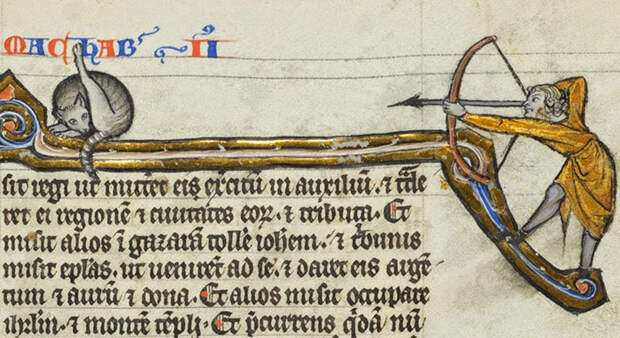 MACHAB II
sit regi ut mitteret eis exc̄itū in auxiliū. ⁊ t̃de
ret ei regionē ⁊ ciuitates eoꝝ. ⁊ tributa. Et
misit alios ī gazaram tolle iohem̄. ⁊ t̃bunis
misit ep̄las. ut uenirēt ad se. ⁊ daret eis argē
tum ⁊ aurū ⁊ dona. Et alios misit occupare
ihrlm̄. ⁊ montē tēpli. Et p̄currens q̇dā nū